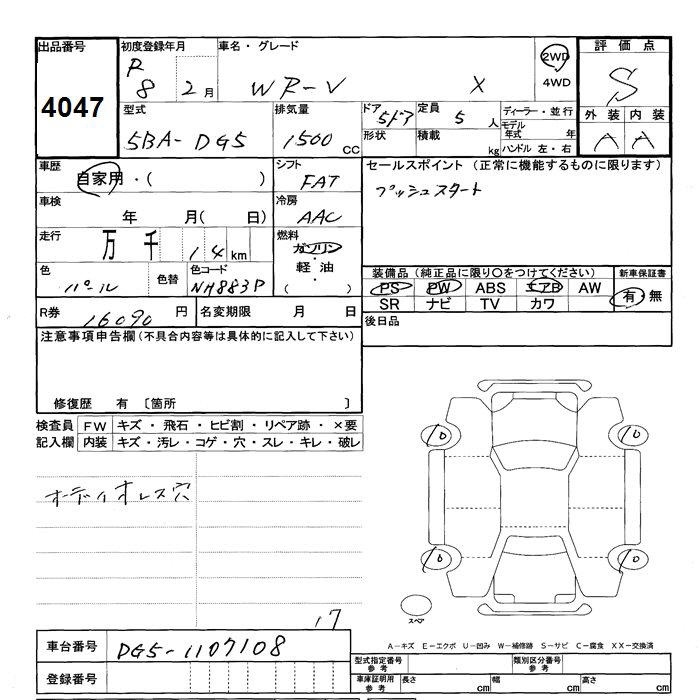 出品番号 初度登録年月 車名・グレード 2WD 評価点
R 8 2月 WR-V X 4WD S
4047
型式 排気量 ドア 定員 ディーラー・並行 外装 内装
5BA-DG5 1500 CC 5ドア 5 人 モデル年式 年 A A
形状 積載 kg ハンドル 左・右
車歴 シフト セールスポイント (正常に機能するものに限ります)
自家用・( ) FAT プッシュスタート
車検 冷房
年 月( 日) AAC
走行 燃料
万 千 14 km ガソリン・軽油・( )
色 色替 色コード 装備品 (純正品に限り〇をつけてください) 新車保証書
パール NH883P PS PW ABS エアB AW 有・無
SR ナビ TV カワ
R券 16090 円 名変期限 月 日 後日品
注意事項申告欄 (不具合内容等は具体的に記入して下さい)
修復歴 有 〔箇所 〕
検査員 FW キズ・飛石・ヒビ割・リペア跡・×要
記入欄 内装 キズ・汚レ・コゲ・穴・スレ・キレ・破レ
オーディオレス穴
10 10
10 10
スペア
17
A-キズ E-エクボ U-凹み W-補修跡 S-サビ C-腐食 XX-交換済
車台番号 DG5-1107108
登録番号
型式指定番号 参考 類別区分番号 参考
車庫証明用 参考 長さ cm 幅 cm 高さ cm